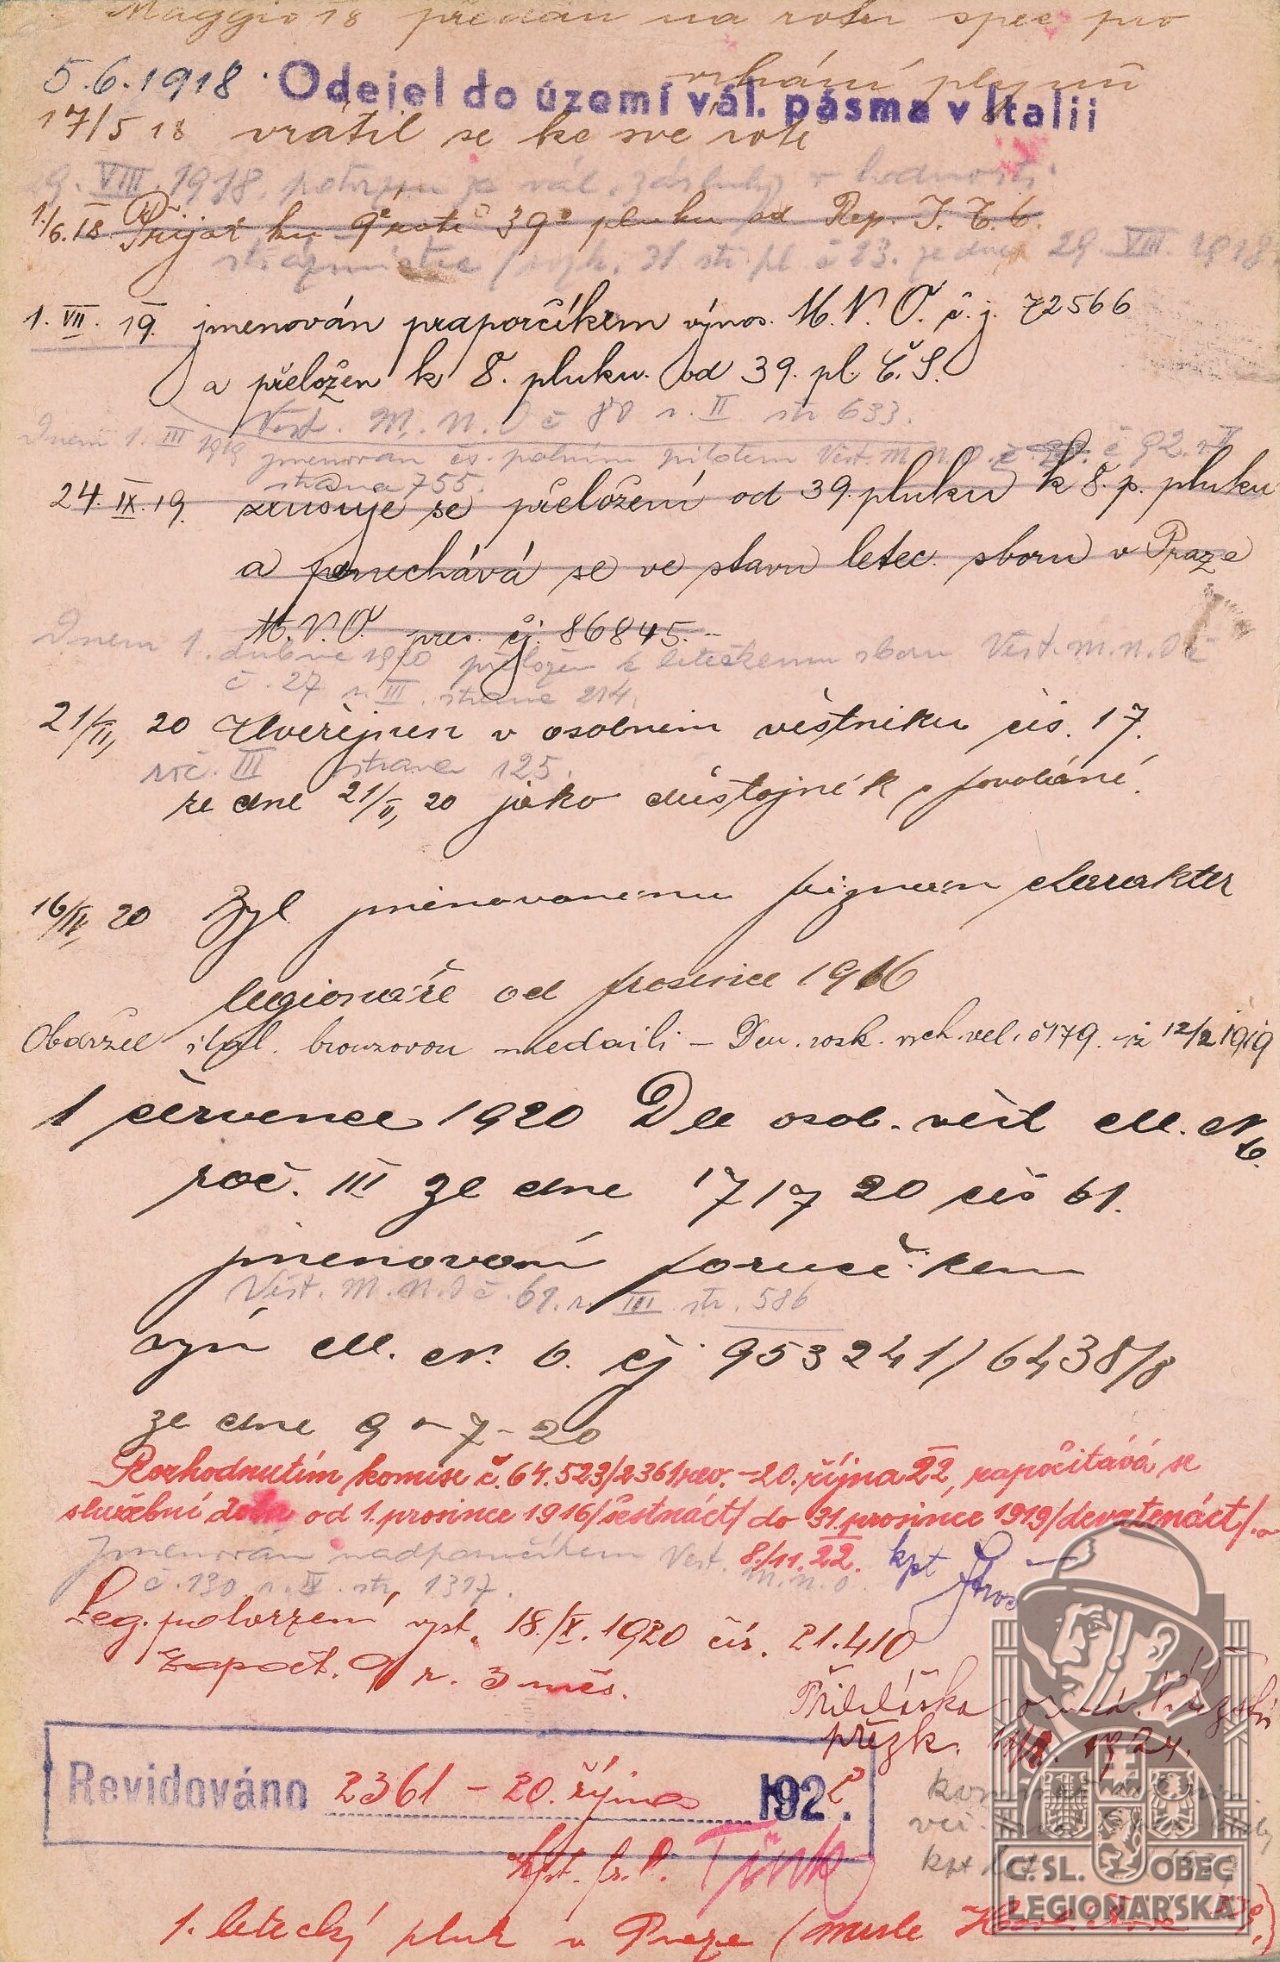 Maggio 18 předán na rotu spec pro
vrhání plynů
5.6.1918 Odejel do území vál. pásma v Italii
17/5 18 vrátil se ke své rotě
29. VIII. 1918. potvrzen za vál. zásluhy v hodnosti
1./6.18 Přijat ku 9é rotě 39o pluku od Rep. I. T. C.
strážmistra / rozk. 31 stř. pl. č 13. ze dne 29. VIII. 1918.
1. VII. 19. jmenován praporčíkem výnos. M. N. O. č. j. 72566
a přeložen k 8. pluku. od 39. pl. Č. S.
Věst. M. N. O č 80 r. II str 633.
Dnem 1. III 1919 jmenován čs. polním pilotem Věst. M. N. O. č. č 92. r II
strana 755.
24. IX. 19. zrušuje se přeložení od 39. pluku k 8. p. pluku
a ponechává se ve stavu letec. sboru v Praze
M. N. O. pres. čj. 86845.-
Dnem 1. dubna 1920 přeložen k leteckému sboru Věst. M. N. O č
č. 27 r. III. strana 214.
21/II, 20 Uveřejněn v osobním věstníku čís. 17.
roč. III strana 125.
ze dne 21/II, 20 jako důstojník z povolání.
16/IV, 20 Byl jmenovanému přiznán charakter
legionáře od prosince 1916
Obdržel ital. bronzovou medaili – Den. rozk. vrch. vel. č 179. 12/2 1919
1 července 1920 Dle osob. věst M. N. O.
roč. III ze dne 17/7 20 čís 61.
jmenován poručíkem
Věst. M. N. O č. 61. r. III str. 586
výn M. N. O. čj 953241/6438/8
ze dne 9 - 7 - 20
Rozhodnutím komise č. 64.523/2361 rev. - 20. října 22, započítává se
služební doba od 1. prosince 1916/šestnáct/ do 31. prosince 1919/devatenáct/.
Jmenován nadporučíkem Věst. M. N. O. 8./11. 22. kpt
č. 130 r. IV. str. 1317.
Leg. potvrzení vyst. 18./X. 1920 čís. 21.410
započt. r. 3 měs.
Přihláška
přezk. 1924.
Revidováno 2361 - 20. října 1922.
kpt.
1. letecký pluk v Praze
Č. SL. OBEC
LEGIONÁŘSKÁ